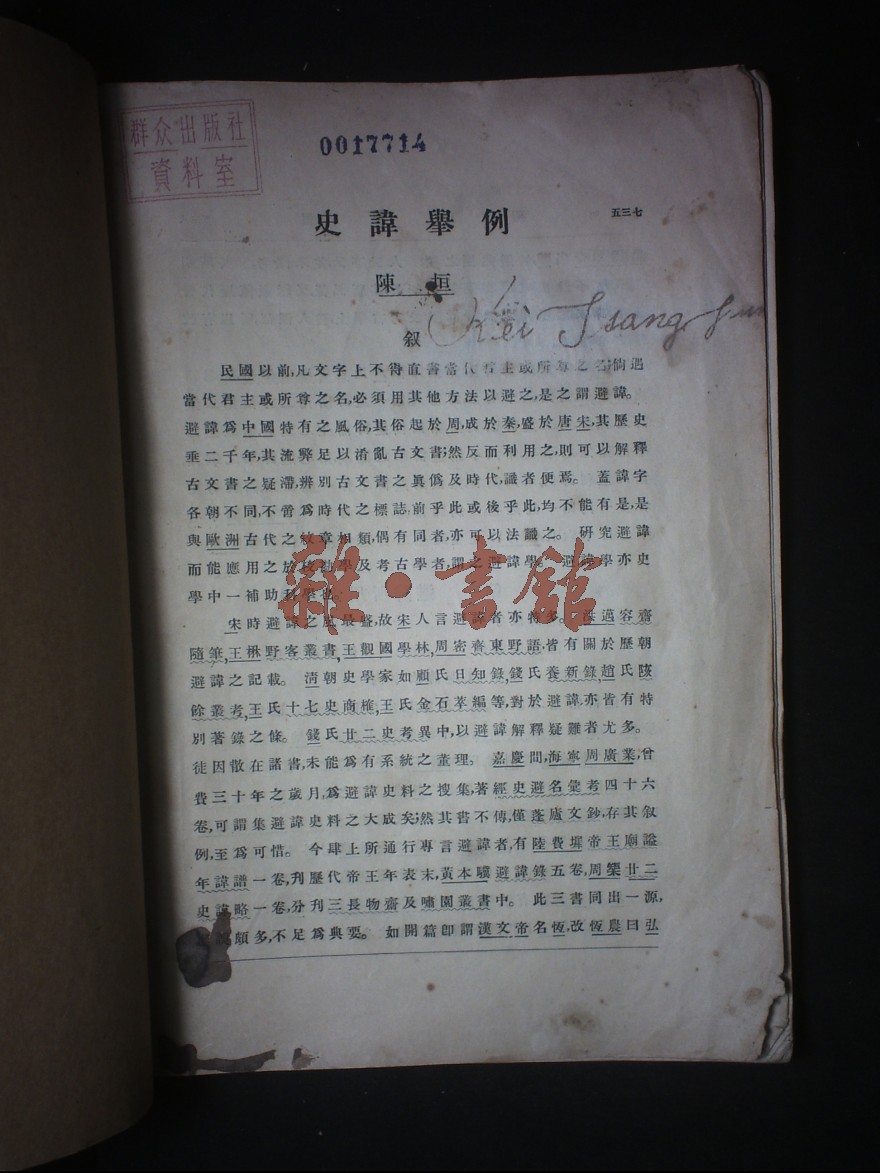 群众出版社
資料室
0017714
五三七
史諱舉例
陳垣
Kei Tsang
叙
民國以前,凡文字上不得直書當代君主或所尊之名;倘遇
當代君主或所尊之名,必須用其他方法以避之,是之謂避諱。
避諱爲中國特有之風俗,其俗起於周,成於秦,盛於唐宋,其歷史
垂二千年,其流弊足以淆亂古文書;然反而利用之,則可以解釋
古文書之疑滯,辨別古文書之眞僞及時代,識者便焉。蓋諱字
各朝不同,不啻爲時代之標誌,前乎此或後乎此,均不能有是,是
與歐洲古代之紋章相類,偶有同者,亦可以法識之。研究避諱
而能應用之於校勘學及考古學者,謂之避諱學。避諱學亦史
學中一補助科學也。
宋時避諱之風最盛,故宋人言避諱者亦特多。洪邁容齋
隨筆,王楙野客叢書,王觀國學林,周密齊東野語,皆有關於歷朝
避諱之記載。清朝史學家如顧氏日知錄,錢氏養新錄,趙氏陔
餘叢考,王氏十七史商榷,王氏金石萃編等,對於避諱,亦皆有特
別著錄之條。錢氏廿二史考異中,以避諱解釋疑難者尤多。
徒因散在諸書,未能爲有系統之董理。嘉慶間,海寧周廣業,曾
費三十年之歲月,爲避諱史料之搜集,著經史避名彙考四十六
卷,可謂集避諱史料之大成矣;然其書不傳,僅蓬廬文鈔,存其叙
例,至爲可惜。今肆上所通行專言避諱者,有陸費墀帝王廟謚
年諱譜一卷,刊歷代帝王年表末,黃本驥避諱錄五卷,周榘廿二
史諱略一卷,分刊三長物齋及嘯園叢書中。此三書同出一源,
頗多,不足爲典要。如開篇卽謂漢文帝名恆,改恆農曰弘
雜·書館